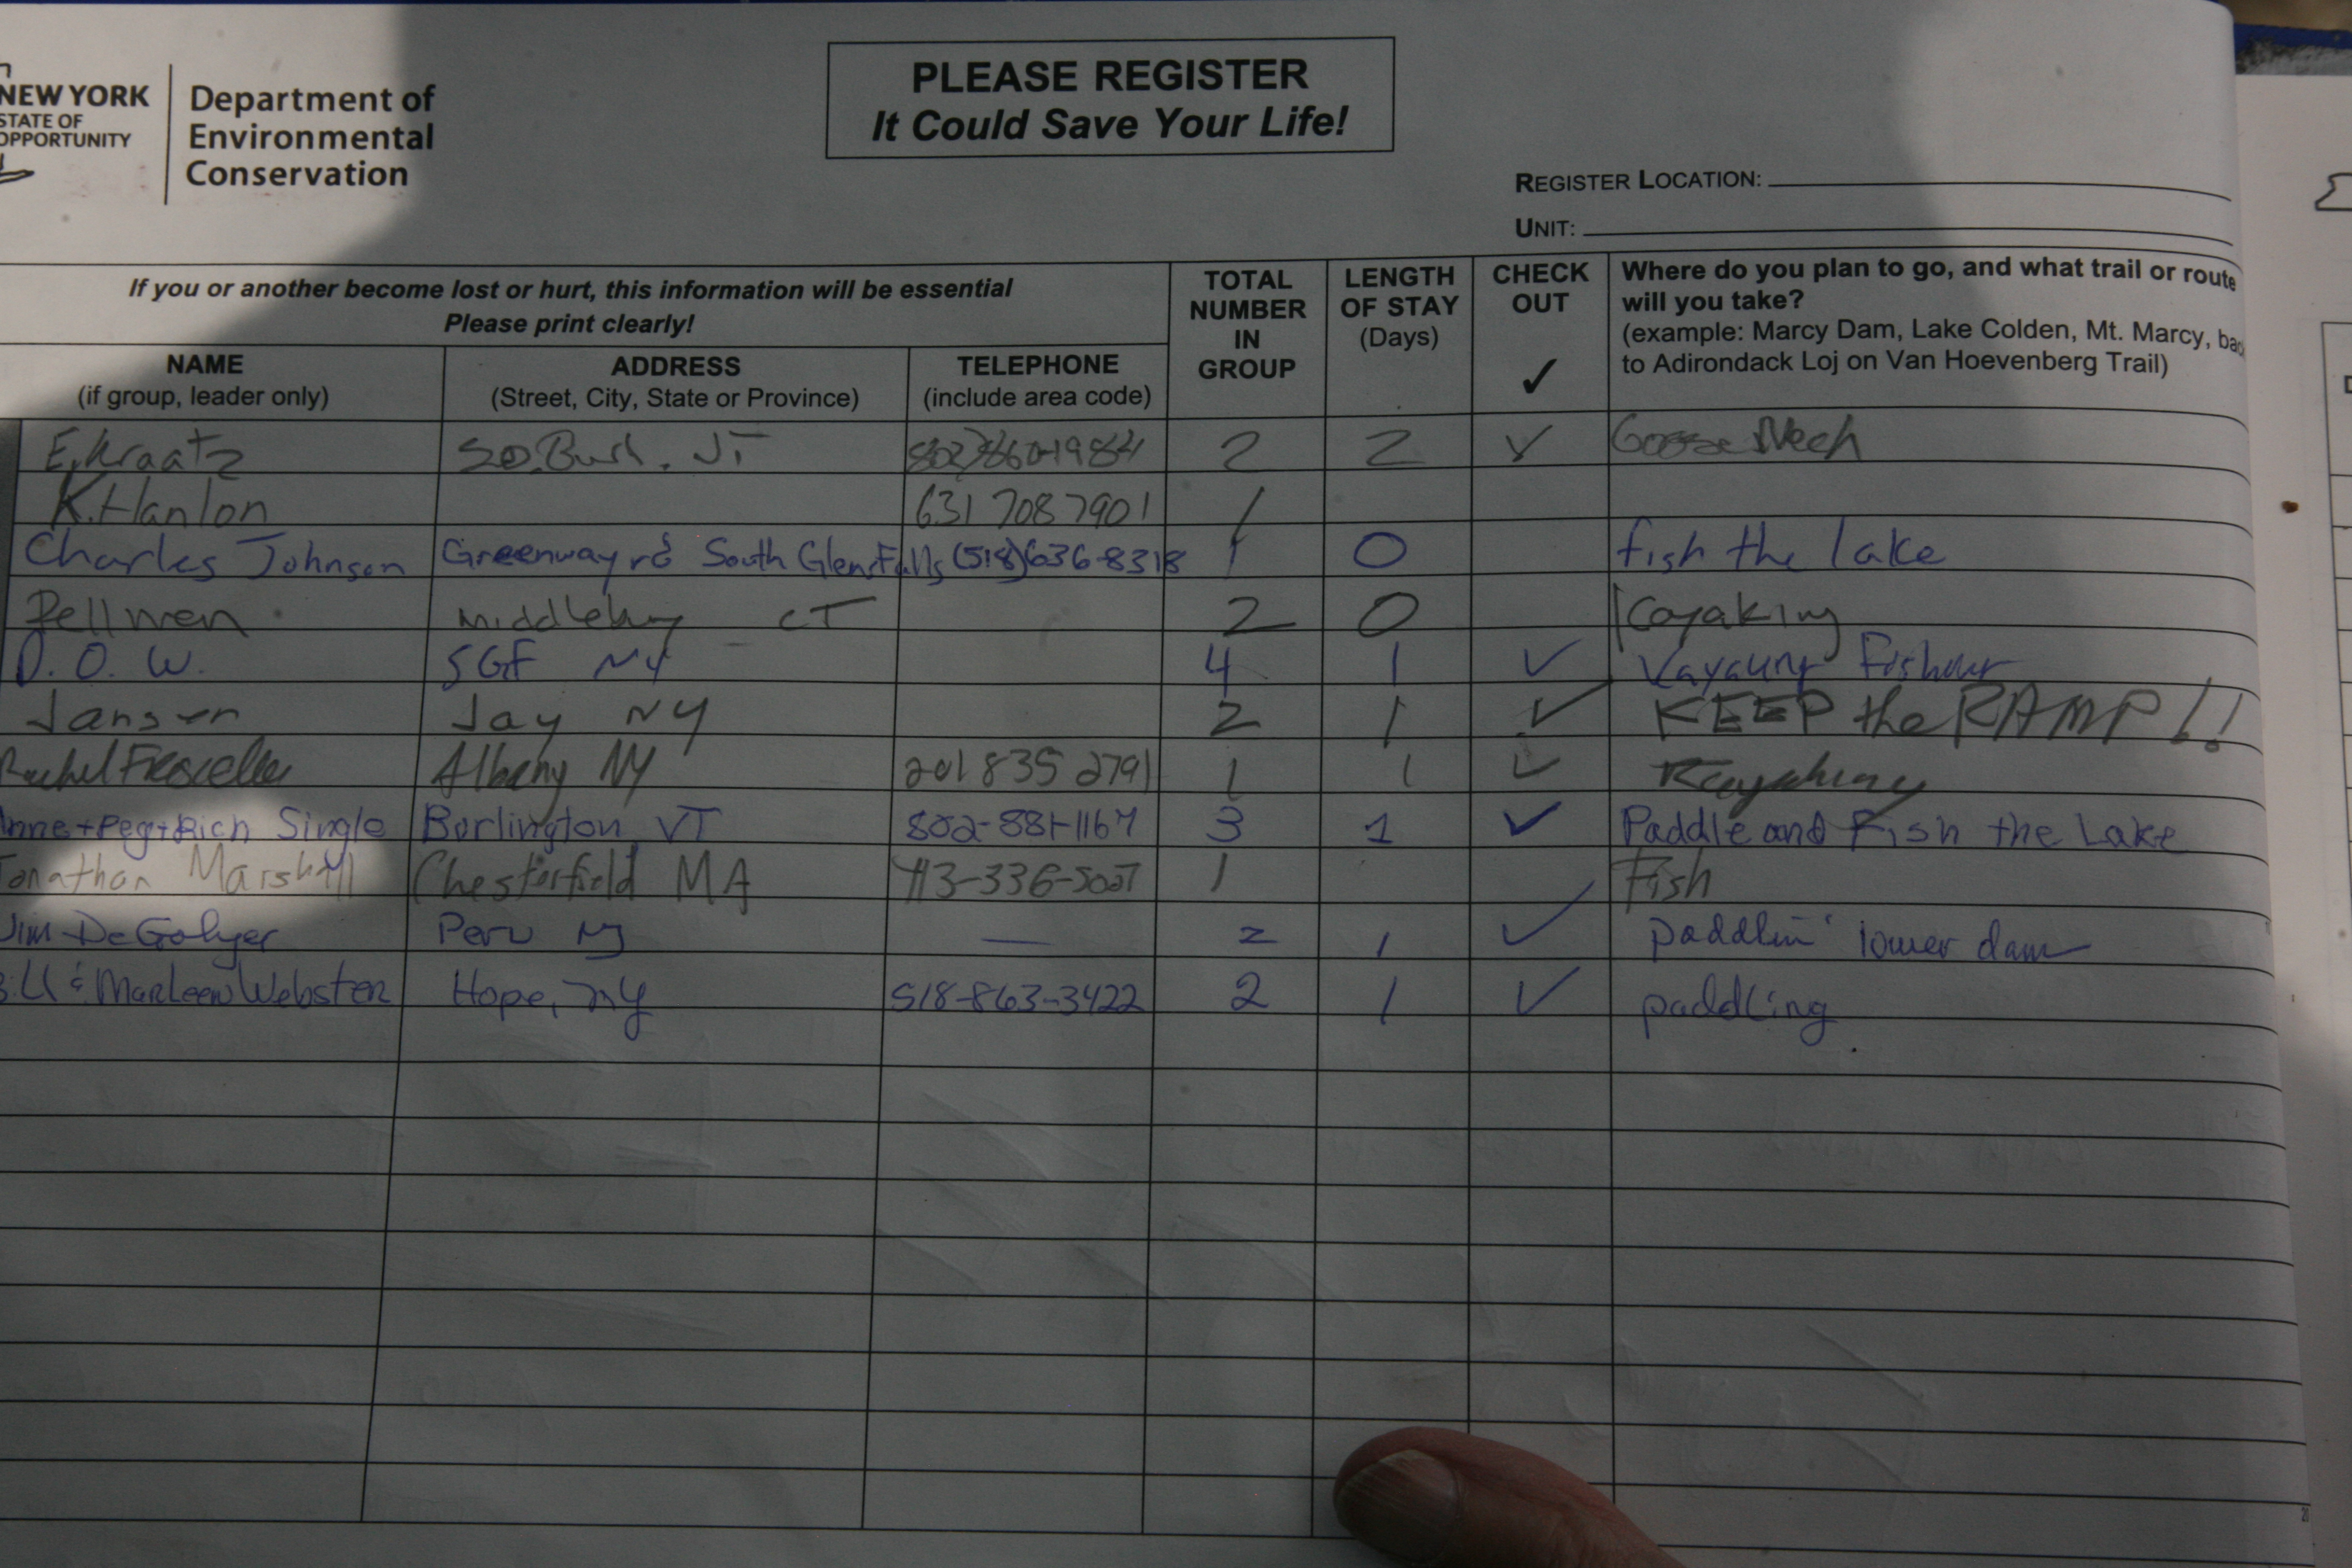 NEW YORK
STATE OF
OPPORTUNITY
Department of
Environmental
Conservation
PLEASE REGISTER
It Could Save Your Life!
REGISTER LOCATION:
UNIT:
If you or another become lost or hurt, this information will be essential
Please print clearly!
NAME
(if group, leader only)
ADDRESS
(Street, City, State or Province)
TELEPHONE
(include area code)
TOTAL
NUMBER
IN
GROUP
LENGTH
OF STAY
(Days)
CHECK
OUT
✓
Where do you plan to go, and what trail or route
will you take?
(example: Marcy Dam, Lake Colden, Mt. Marcy, bac
to Adirondack Loj on Van Hoevenberg Trail)
E. Kraatz So. Burl. VT 802)860-1984 2 2 ✓ Goose Neck
K. Hanlon 631 708 7901 1
Charles Johnson Greenway rd South Glens Falls (518)636-8318 1 0 fish the lake
Pellmen Middlebury CT 2 0 Kayaking
D. O. W. SGF NY 4 1 ✓
Jansen Jay NY 2 1 ✓ KEEP the RAMP!!
Rachel Albany NY 201 835 2791 1 1 ✓ Kayaking
Anne+Peg+Rich Single Burlington, VT 802-881-1167 3 1 ✓ Paddle and Fish the Lake
Jonathan Marshall Chesterfield MA 413-336-5027 1 Fish
Jim DeGolyer Peru NY — 2 1 ✓ paddlin' lower dam
Bill & Marleen Webster Hope, NY 518-863-3422 2 1 ✓ paddling